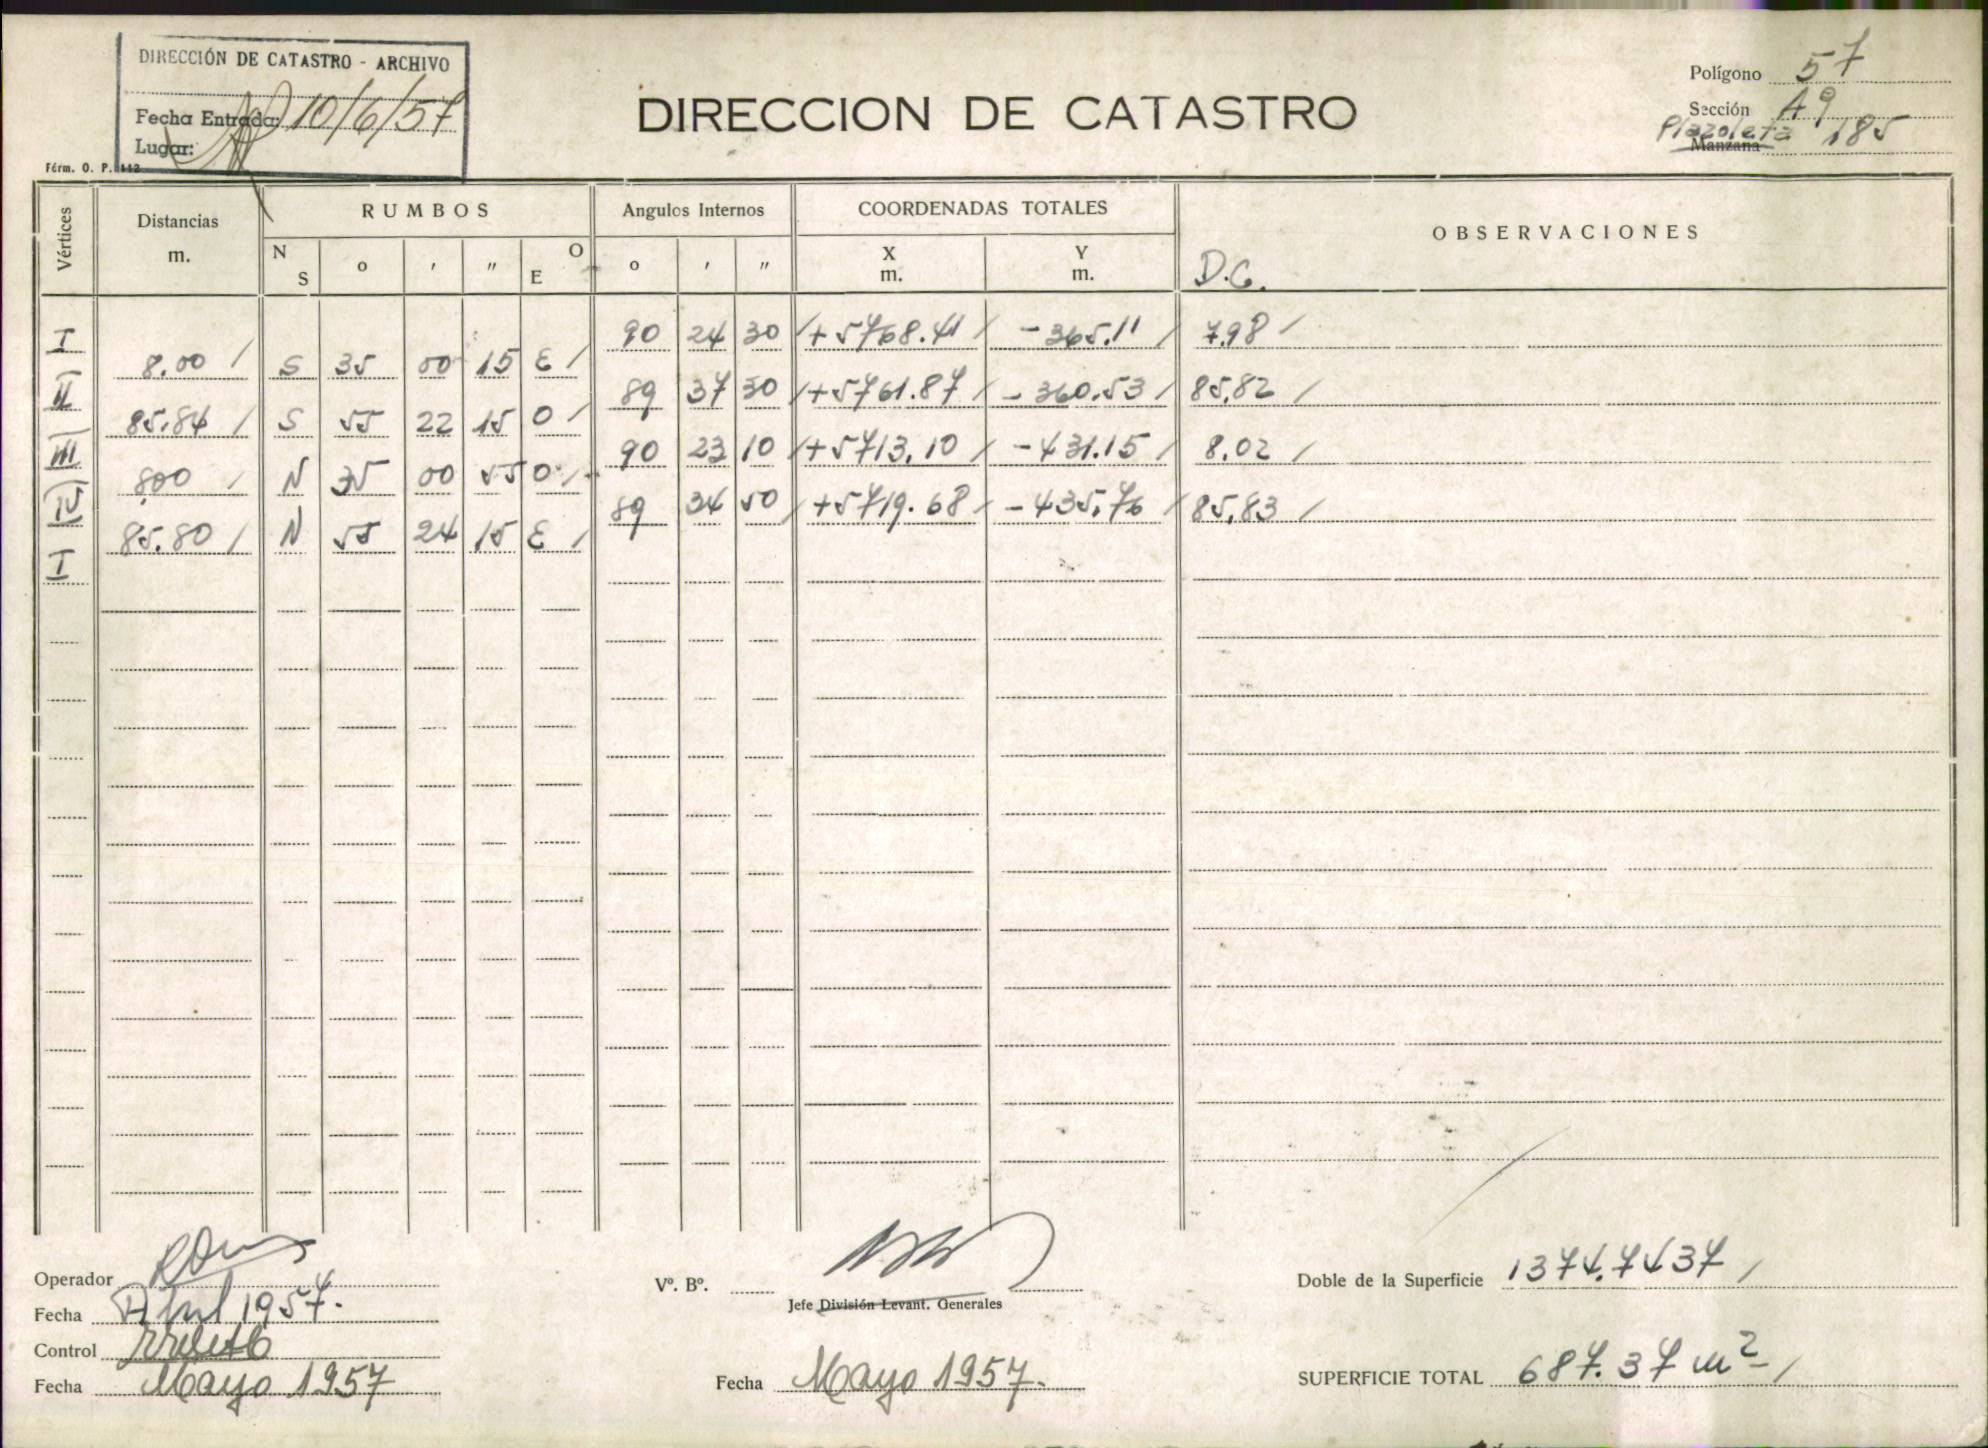 DIRECCIÓN DE CATASTRO - ARCHIVO
Fecha Entrada: 10/6/57
Lugar:
Fórm. O. P. 112
DIRECCION DE CATASTRO
Polígono 57
Sección A9
Plazoleta 185
Manzana
Vértices
Distancias
m.
RUMBOS
N S ° ' " E O
Angulos Internos
° ' "
COORDENADAS TOTALES
X m. Y m.
OBSERVACIONES
D.C.
I 90 24 30 +5768.41 -365.11 7.98
8.00 S 35 00 15 E
II 89 37 30 +5761.87 -360.53 85.82
85.84 S 55 22 15 O
III 90 23 10 +5713.10 -431.15 8.02
8.00 N 35 00 55 O
IV 89 34 50 +5719.68 -435.76 85.83
85.80 N 55 24 15 E
I
Operador
Fecha Abril 1957.
Control
Fecha Mayo 1957
Vº. Bº.
Jefe División Levant. Generales
Fecha Mayo 1957.
Doble de la Superficie 1374.7437
SUPERFICIE TOTAL 687.37 m²